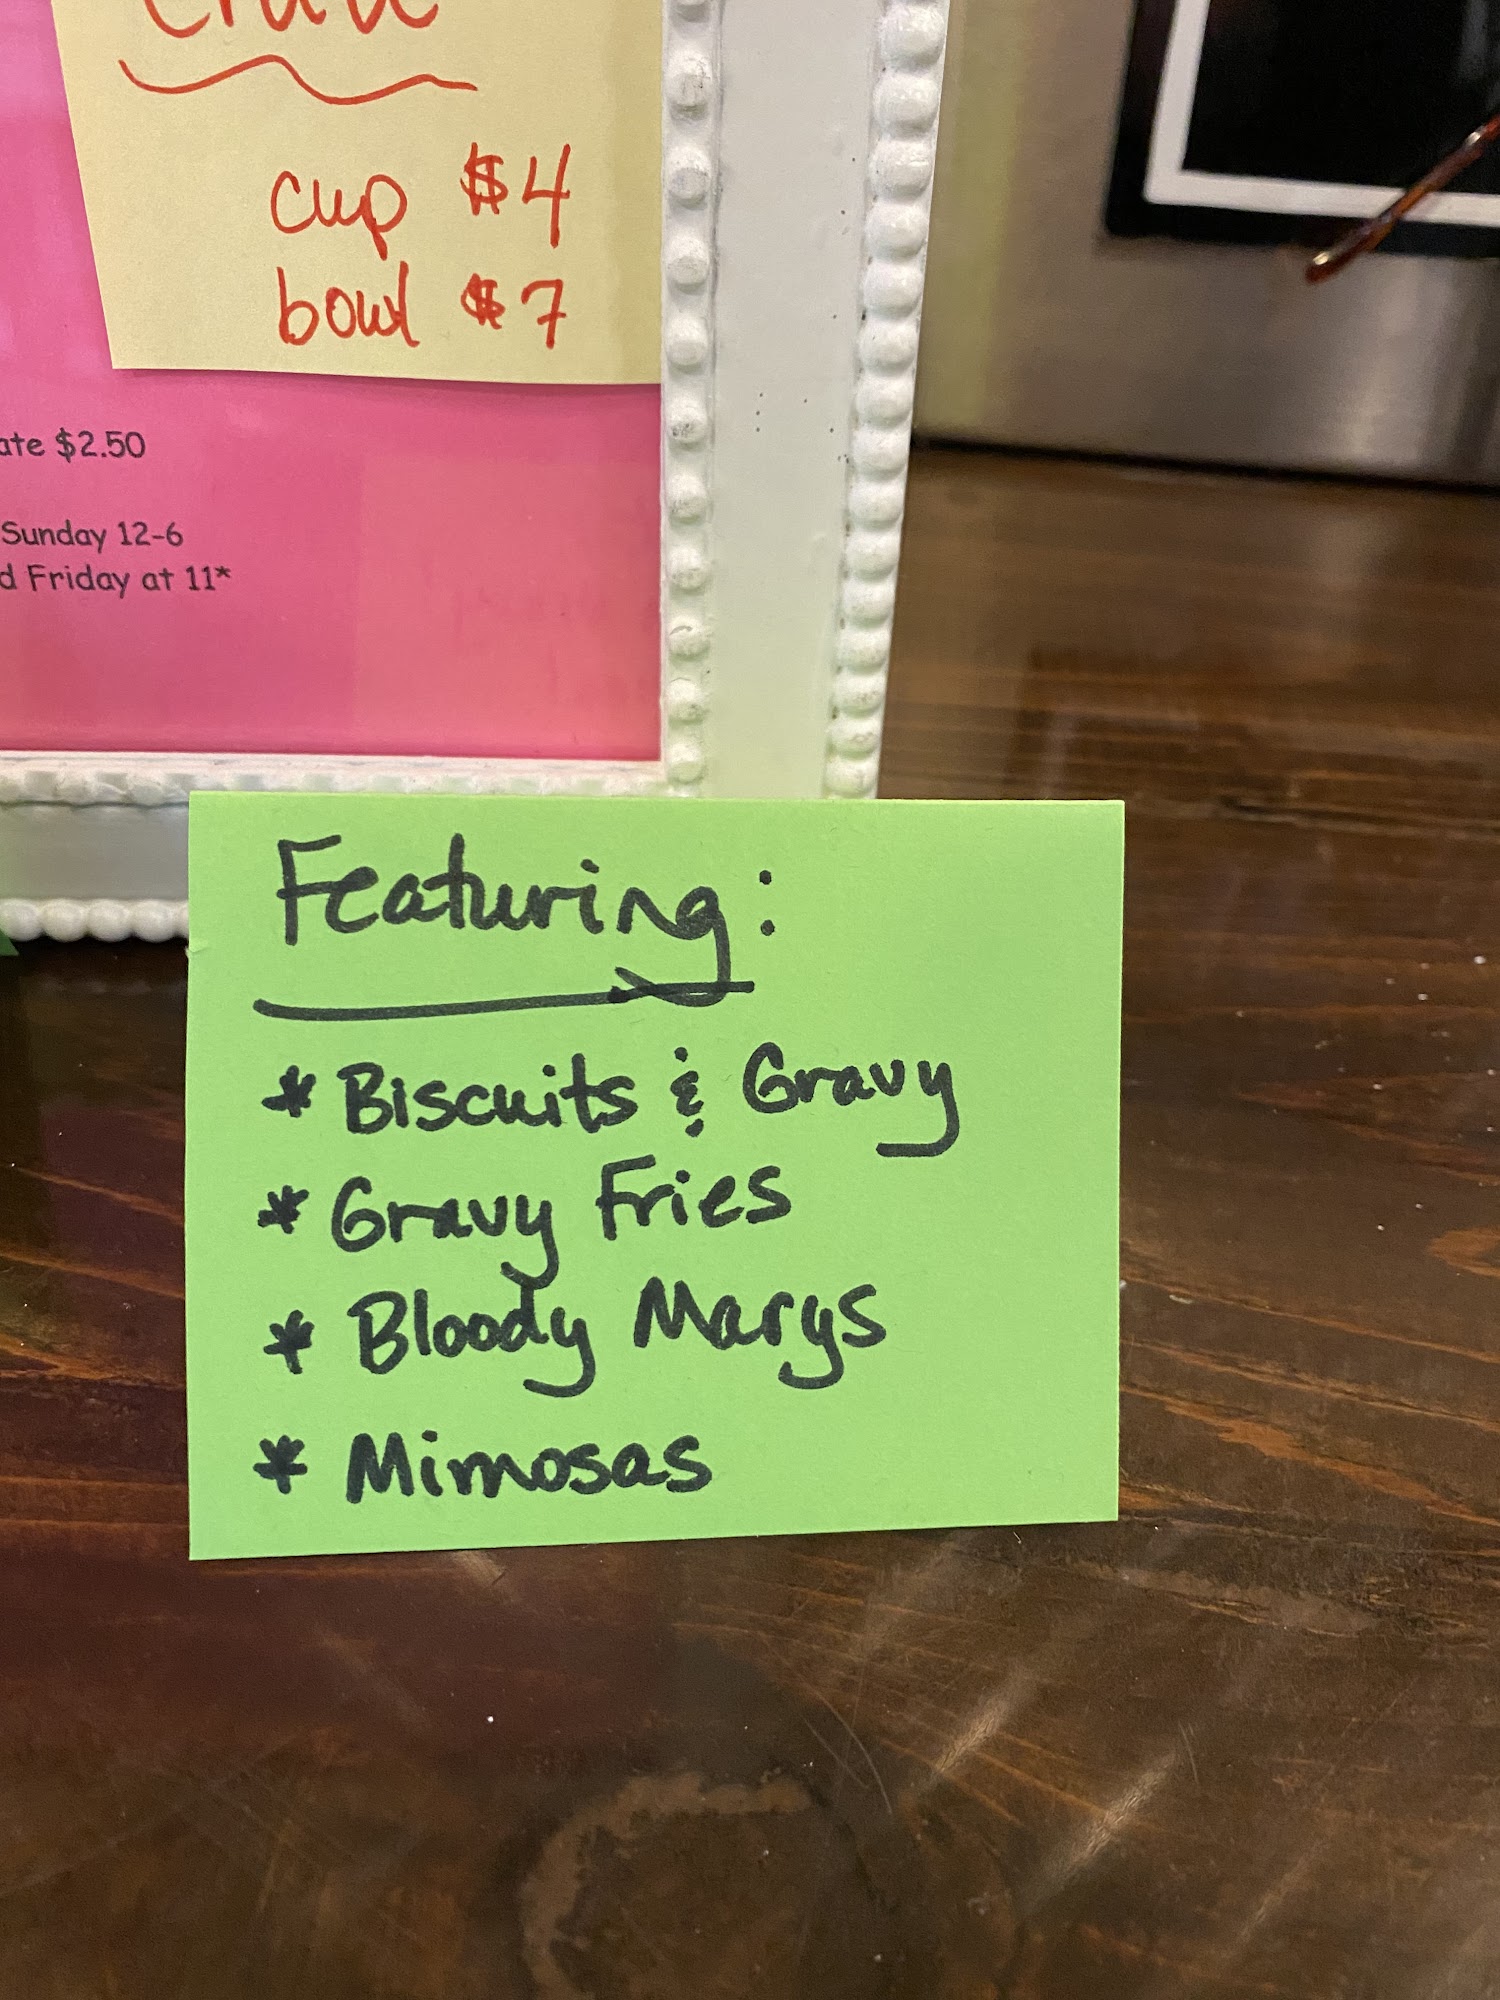 cup $4
bowl $7
$2.50
Sunday 12-6
Friday at 11*
Featuring:
* Biscuits & Gravy
* Gravy Fries
* Bloody Marys
* Mimosas